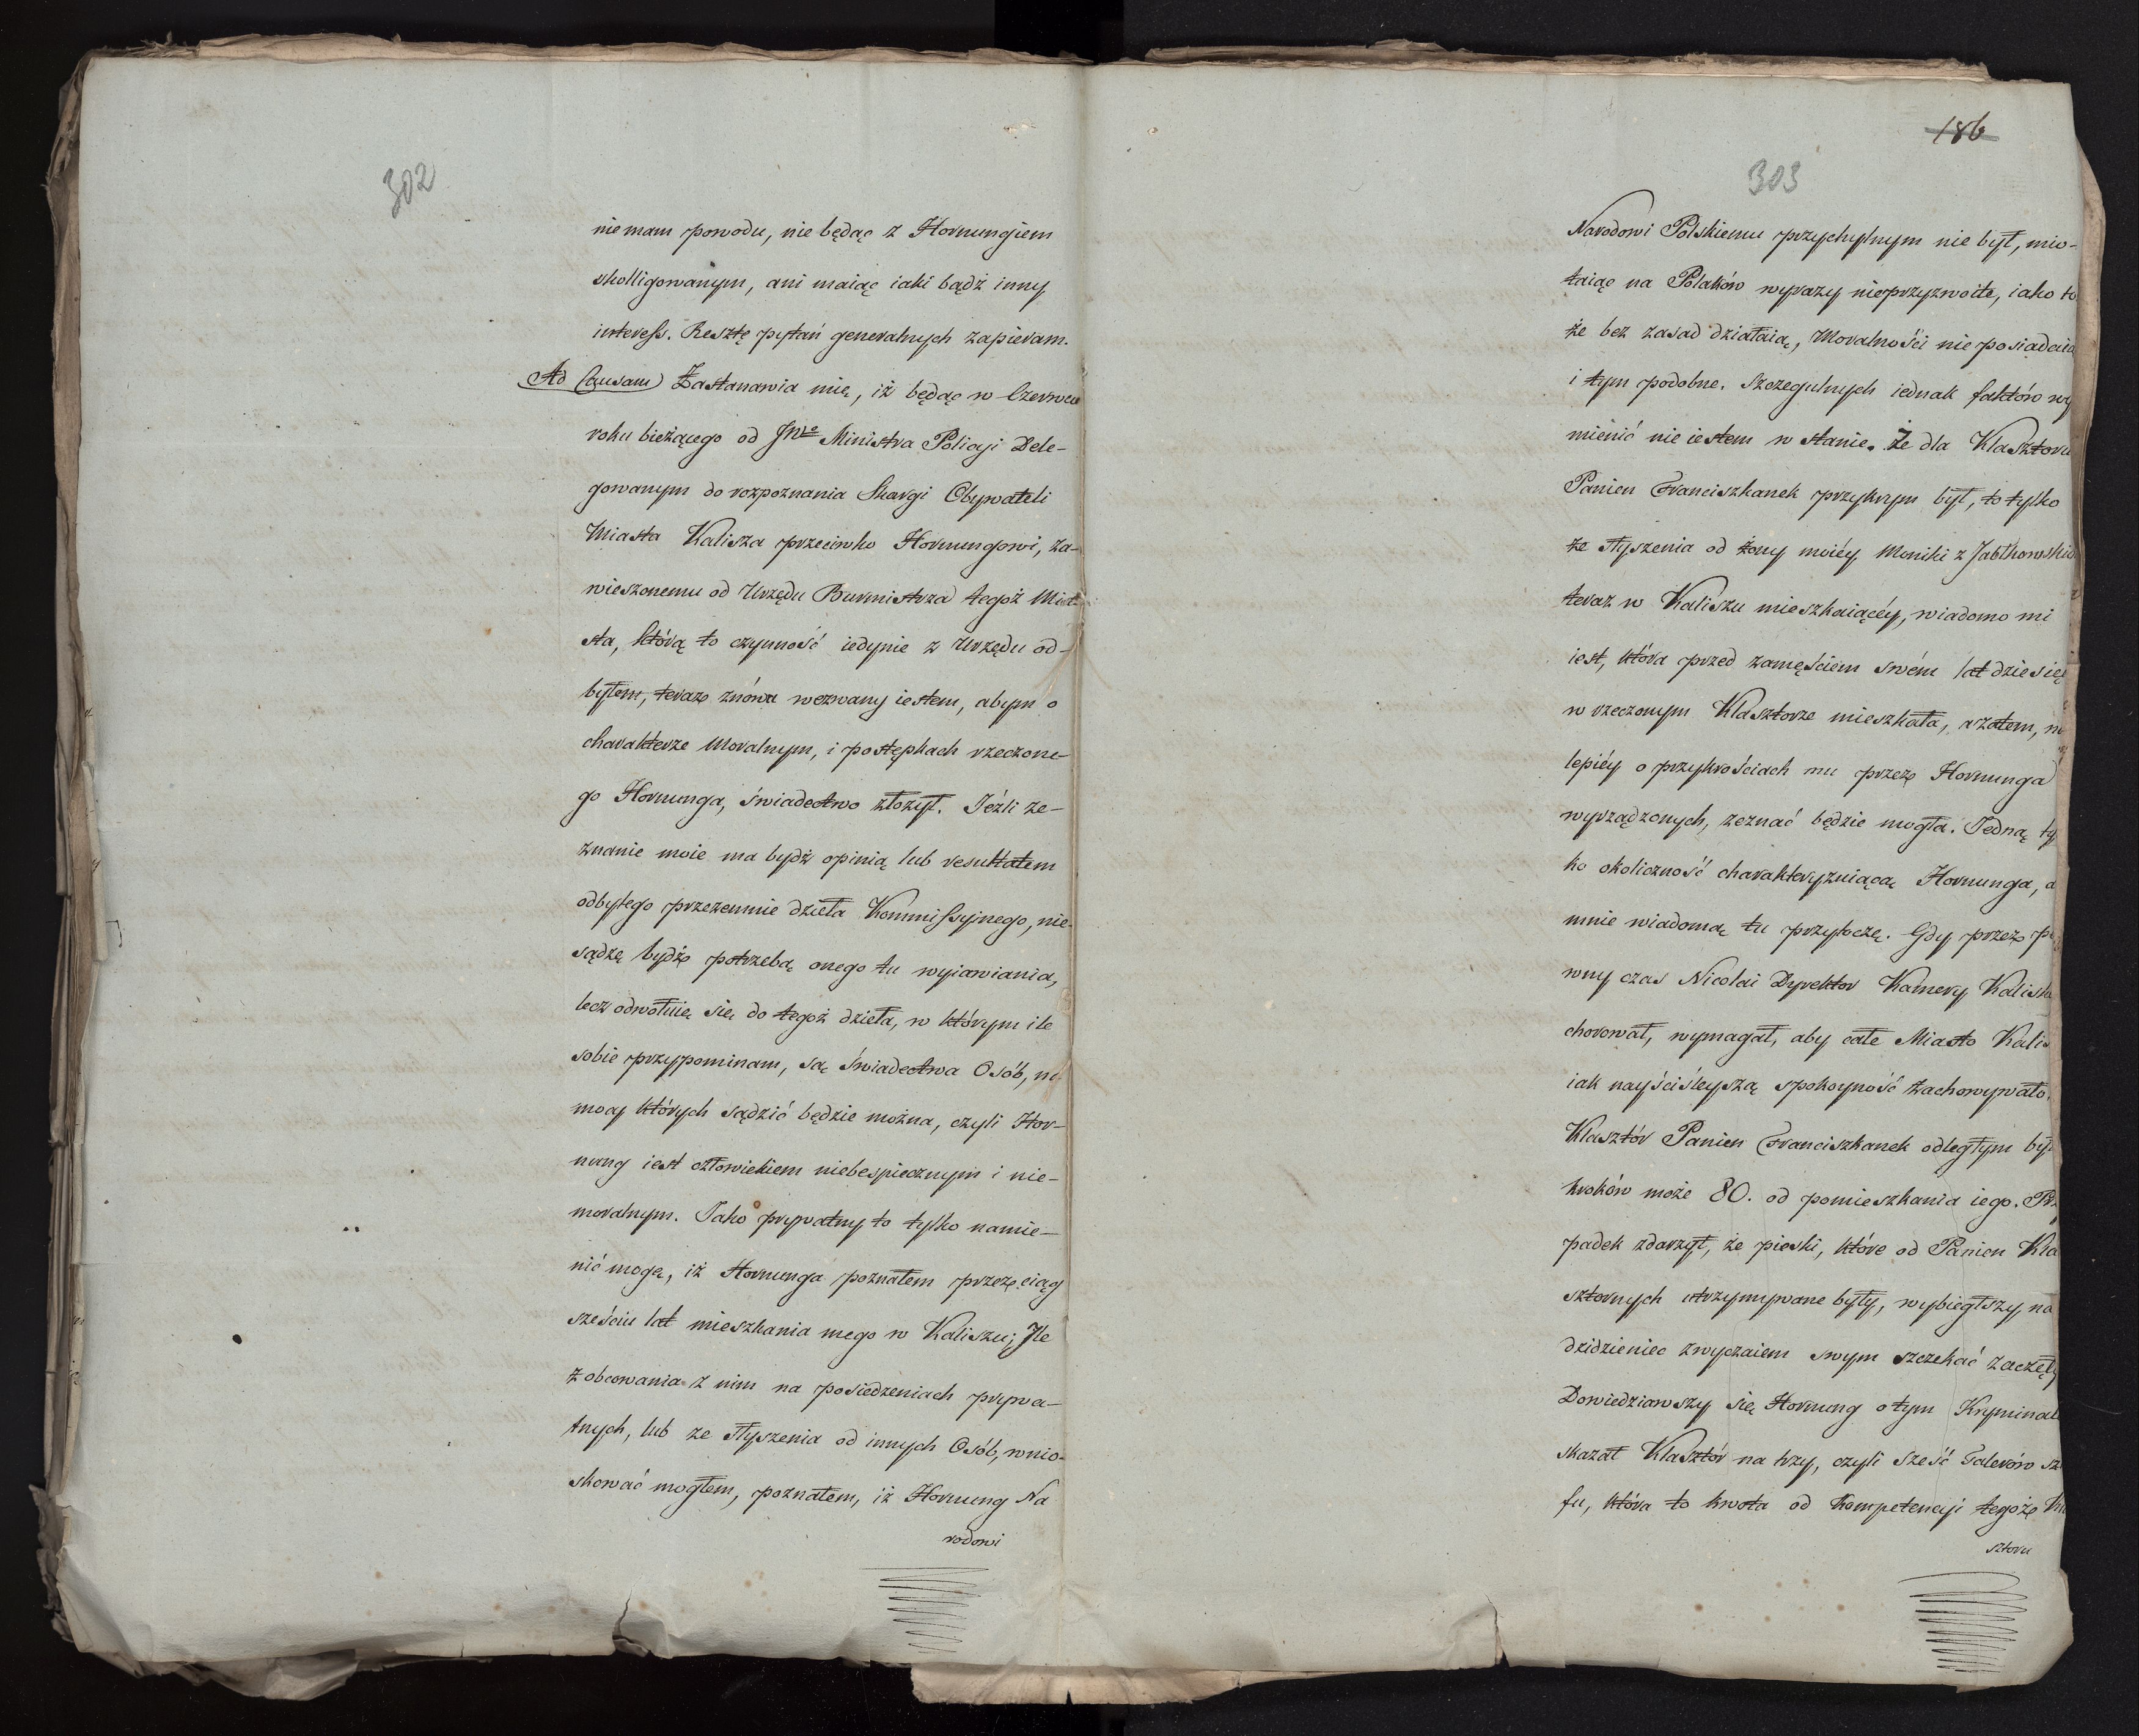 302
niemam powodu, nie będąc z Hornungiem
skolligowanym, ani maiąc iaki bądź inny
interess. Resztę pytań generalnych zapieram.
Ad Causam Zastanawia mię, iż będąc w Czerwcu
roku bieżącego od Ministra Policyi Dele-
gowanym do rozpoznania Skargi Obywateli
Miasta Kalisza przeciwko Hornungowi, za-
wieszonemu od Urzędu Burmistrza tegoż Mia-
sta, którą to czynność iedynie z Urzędu od-
byłem, teraz znówu wezwany iestem, abym o
charakterze Moralnym, i postępkach rzeczone-
go Hornunga, świadectwo złożył. Jeźli ze-
znanie moie ma bydź opinią lub resultatem
odbytego przezemnie dzieła Kommissyjnego, nie-
sądzę bydź potrzebą onego tu wyiawiania,
lecz odwołuię się do tegoż dzieła, w którym ile
sobie przypominam, są świadectwa Osób, na
mocy których sądzić będzie można, czyli Hor-
nung iest człowiekiem niebespiecznym i nie-
moralnym. Jako prywatny to tylko namie-
nić mogę, iż Hornunga poznałem przez ciąg
sześciu lat mieszkania mego w Kaliszu; Ile
z obcowania z nim na posiedzeniach prywa-
tnych, lub ze słyszenia od innych Osób, wnio-
skować mogłem, poznałem, iż Hornung Na
rodowi
186
303
Narodowi Polskiemu przychylnym nie był, mio-
taiąc na Polaków wyrazy nieprzyzwoite, iako to
że bez zasad działaią, Moralności nie posiadaią
i tym podobne. Szczegulnych iednak faktów wy
mienić nie iestem w stanie. Że dla Klasztoru
Panien Franciszkanek przykrym był, to tylko
ze słyszenia od żony moiéy Moniki z Jabłkowskich
teraz w Kaliszu mieszkaiącéy, wiadomo mi
iest, która przed zamęściem swém lat dziesięć
w rzeczonym Klasztorze mieszkała, a zatem, na
lepiéy o przykrościach mu przez Hornunga
wyrządzonych, zeznać będzie mogła. Jedną tyl
ko okoliczność charakteryzuiącą Hornunga, a
mnie wiadomą tu przytoczę. Gdy przez pe
wny czas Nicolai Dyrektor Kamery Kaliskiey
chorował, wymagał, aby całe Miasto Kalisz
iak nayściśleyszą spokoyność zachowywało.
Klasztór Panien Franciszkanek odległym był
kroków może 80. od pomieszkania iego. Przy
padek zdarzył, że pieski, które od Panien Kla
sztornych utrzymywane były, wybiegłszy na
dzidzieniec zwyczaiem swym szczekać zaczęły
Dowiedziawszy się Hornung o tym Kryminale
skazał Klasztór na trzy, czyli sześć Talerów sz
fu, która to kwota od Kompetencyi tegoż Kla
sztoru